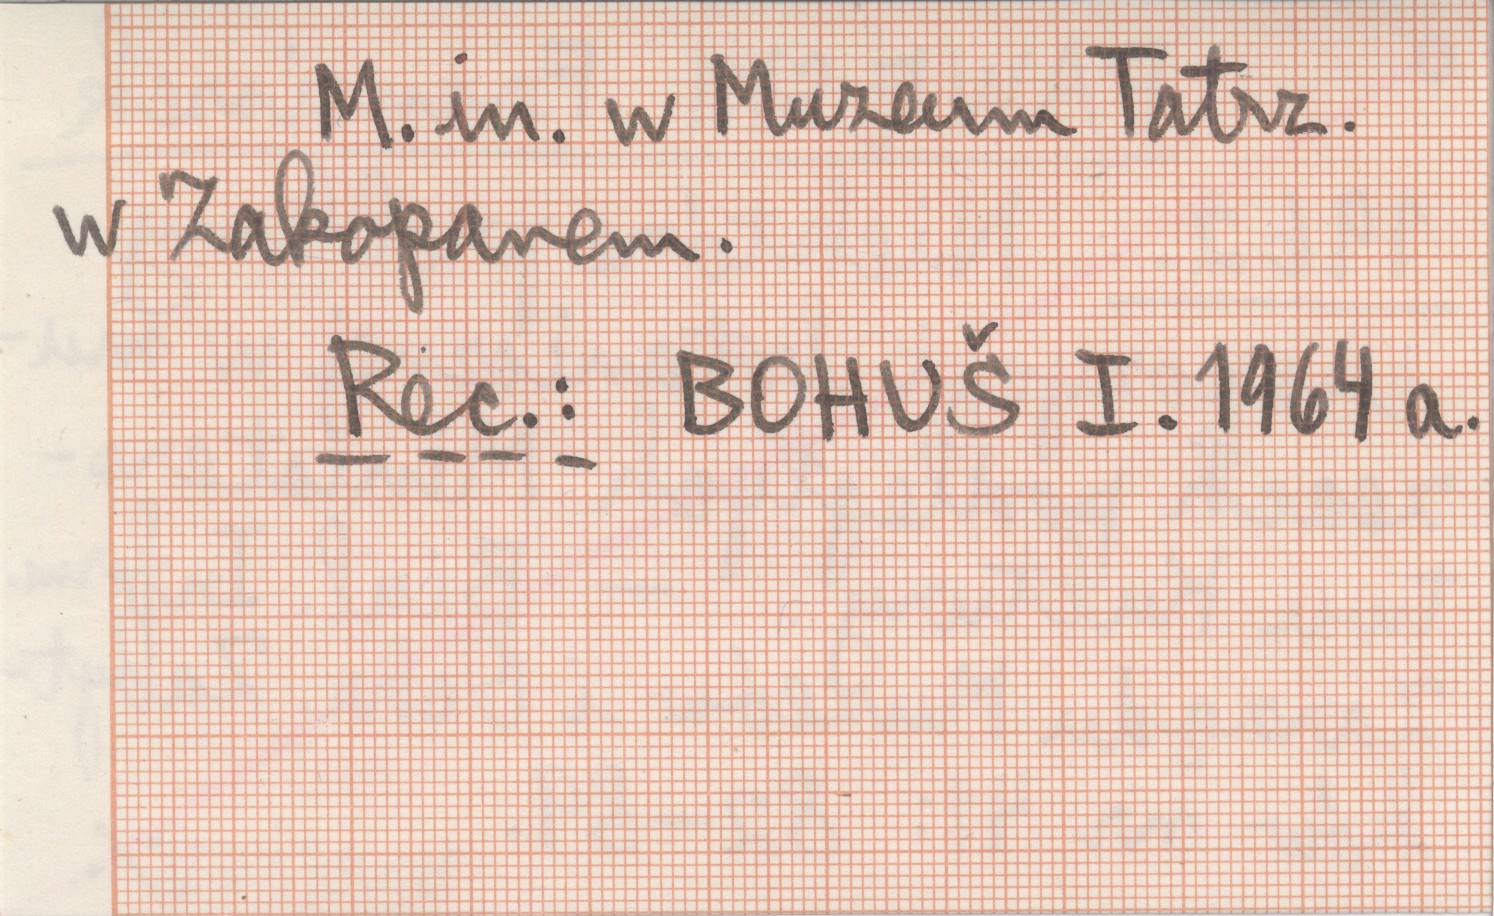 M. in. w Muzeum Tatrz.
w Zakopanem.
Rec.: BOHUŠ I. 1964 a.